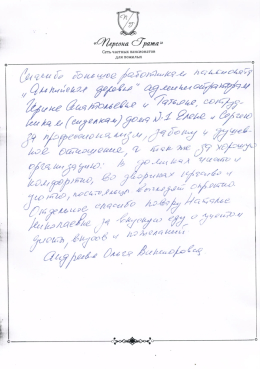 «Персона Грата»
Сеть частных пансионатов
для пожилых
Спасибо большое работникам пансионата
"Альпийская деревня" администраторам
Ирине Анатольевне и Татьяне, сотруд-
никам (сиделкам) дома №1 Елене и Сергею
за профессионализм, заботу и душев-
ное отношение, а так же за хорошую
организацию: в домиках чисто и
комфортно, во двориках красиво и
уютно, постояльцы выглядят опрятно
Отдельное спасибо повару Наталье
Николаевне за вкусную еду с учетом
диет, вкусов и пожеланий
Андреева Ольга Викторовна